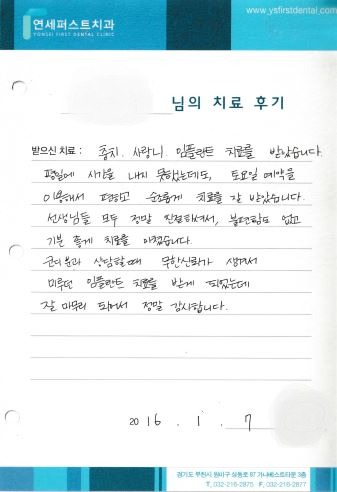 연세퍼스트치과
YONSEI FIRST DENTAL CLINIC
www.ysfirstdental.com
님의 치료 후기
받으신 치료 : 충치. 사랑니. 임플란트 치료를 받았습니다.
평일에 시간을 내지 못했는데도, 토요일 예약을
이용해서 편하고 순조롭게 치료를 잘 받았습니다.
선생님들 모두 정말 친절하셔서, 불편함도 없고
기분 좋게 치료를 마쳤습니다.
상담할때 무한신뢰가 생겨서
미루던 임플란트 치료를 받게 되었는데
잘 마무리 되어서 정말 감사합니다.
2016. 1. 7
경기도 부천시 원미구 상동로 87 가나베스트타운 3층
T. 032-216-2875 F. 032-216-2877